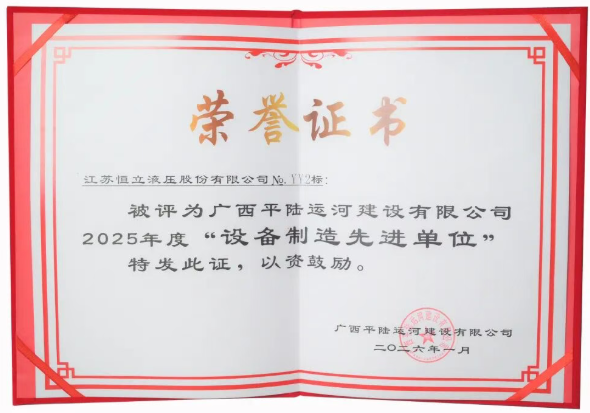 荣誉证书
江苏恒立液压股份有限公司No.YY2标:
被评为广西平陆运河建设有限公司
2025年度“设备制造先进单位”
特发此证，以资鼓励。
广西平陆运河建设有限公司
二〇二六年一月